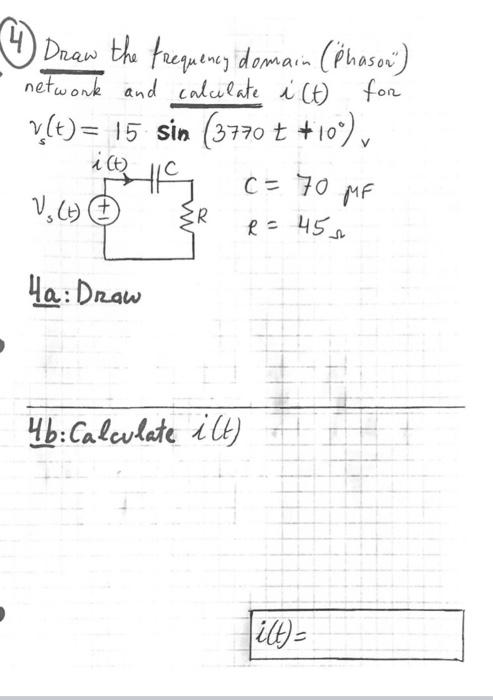 4 Draw the frequency domain ("phasor")
network and calculate i(t) for
vs(t) = 15 sin (3770 t + 10°) v
i(t) C C = 70 µF
Vs(t) + − R R = 45 Ω
4a: Draw
4b: Calculate i(t)
i(t) =